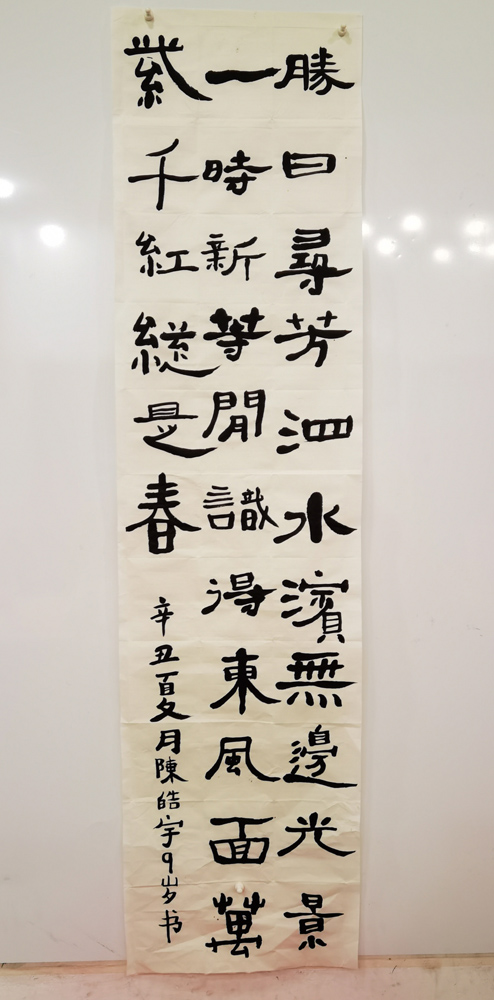 勝日尋芳泗水濱無邊光景
一時新等閒識得東風面萬
紫千紅總是春
辛丑夏月陳皓宇9岁书